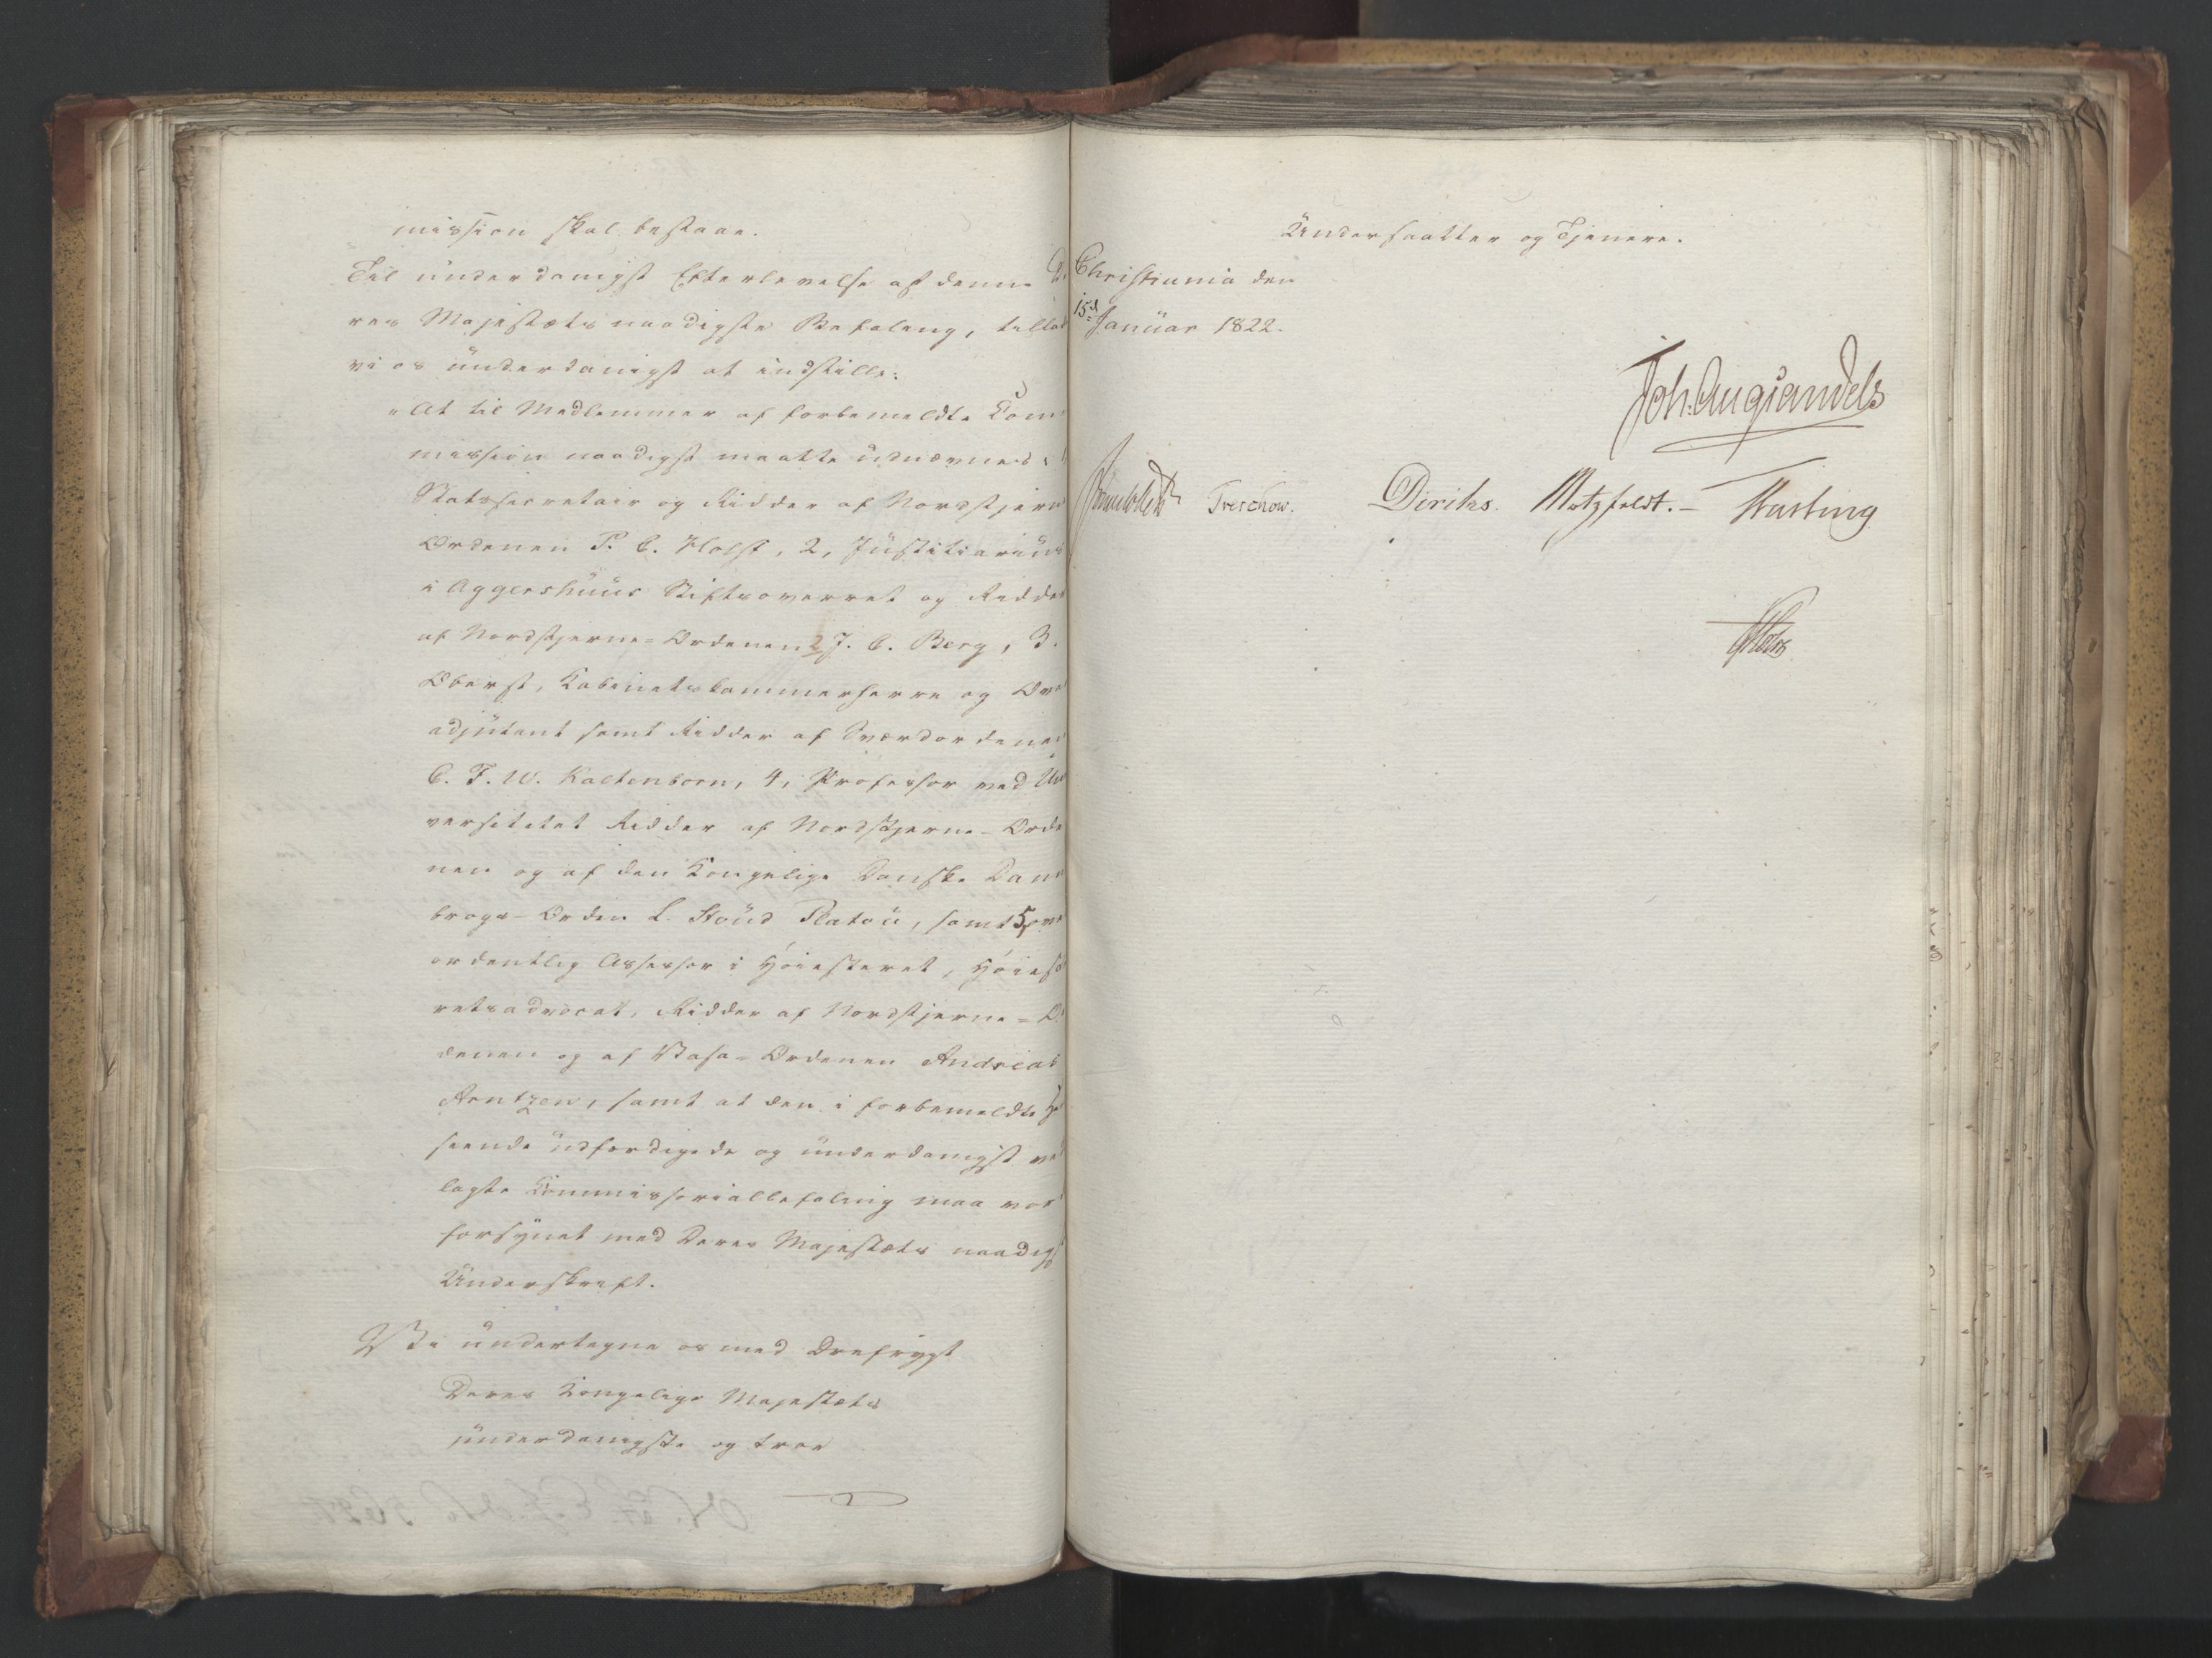 mission skal bestaae.
Til underdanigst Efterlevelse af denne De
res Majestæts naadigste Befaling, tillade
vi os underdanigst at indstille:
"At til Medlemmer af forbemeldte Com
mission naadigst maatte udnævnes: 1,
Statssecretair og Ridder af Nordstjerne
Ordenen P. C. Holst, 2, Justitiarius
i Aggershuus Stiftsoverret og Ridder
af Nordstjerne-Ordenen J. C. Berg, 3.
Oberst, Kabinetskammerherre og Over
adjutant samt Ridder af Sværdordenen
C. F. W. Kaltenborn, 4, Professor ved Uni
versitetet Ridder af Nordstjerne-Orde
nen og af den Kongelige Danske Danne
brogs-Orden L. Stoud Platou, samt 5,
ordentlig Assessor i Høiesteret, Høieste
retsadvocat, Ridder af Nordstjerne-Or
denen og af Vasa-Ordenen Andreas
Arntzen, samt at den i forbemeldte Hen
seende udfærdigede og underdanigst ved
lagte Commissorialbefaling maa vorde
forsynet med Deres Majestæts naadigste
Underskrift.
Vi undertegne os med Ærefrygt
Deres Kongelige Majestæts
underdanigste og troe
Undersaatter og Tjenere.
Christiania den
15de Januar 1822.
Joh. Aug Sandels
Sommerhielm Treschow. Diriks. Motzfeldt. Fasting
Holst